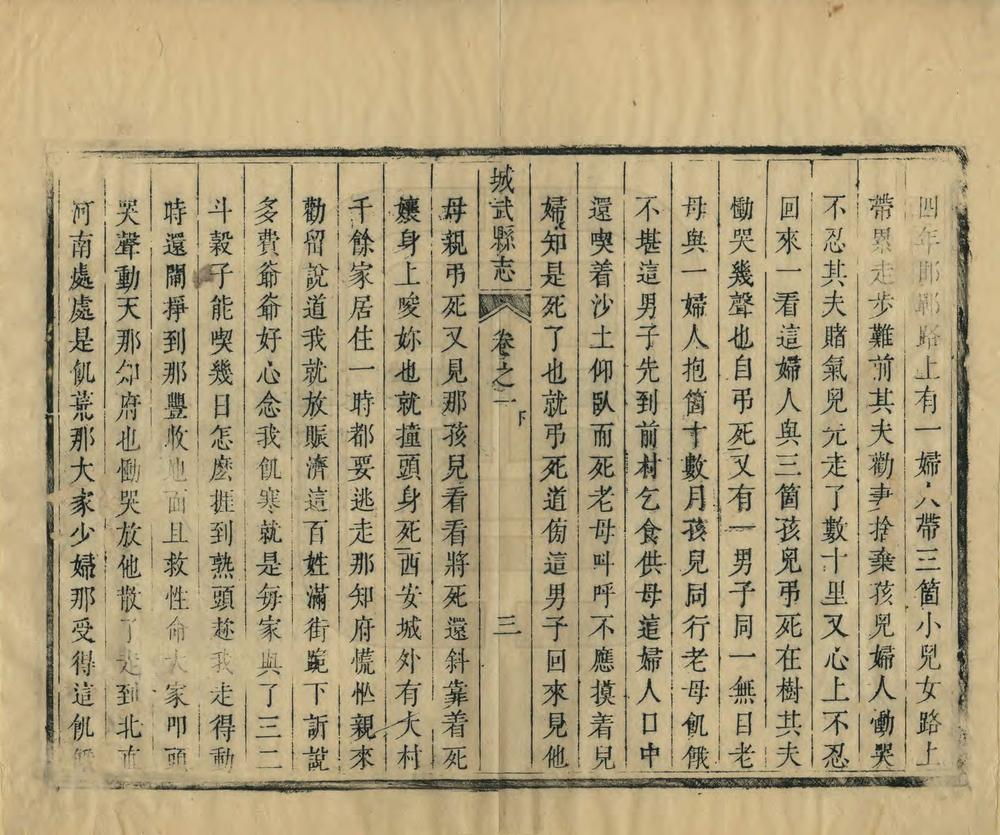 四年邯鄲路上有一婦人帶三箇小兒女路上
帶累走步難前其夫勸妻捨棄孩兒婦人慟哭
不忍其夫賭氣兒先走了數十里又心上不忍
回來一看這婦人與三箇孩兒弔死在樹其夫
慟哭幾聲也自弔死又有一男子同一無目老
母與一婦人抱箇十數月孩兒同行老母飢餓
不堪這男子先到前村乞食供母這婦人口中
還喫着沙土仰臥而死老母呌呼不應摸着兒
婦知是死了也就弔死道傍這男子回來見他
城武縣志 卷之一 下 三
母親弔死又見那孩兒看看將死還斜靠着死
孃身上唆妳也就撞頭身死西安城外有大村
千餘家居住一時都要逃走那知府慌忙親來
勸留說道我就放賑濟這百姓滿街跪下訴說
多費爺爺好心念我飢寒就是每家與了三二
斗穀子能喫幾日怎麽捱到熟頭趂我走得動
時還閙掙到那豐收地面且救性命大家叩頭
哭聲動天那知府也慟哭放他散了走到北直
河南處處是飢荒那大家少婦那受得這飢